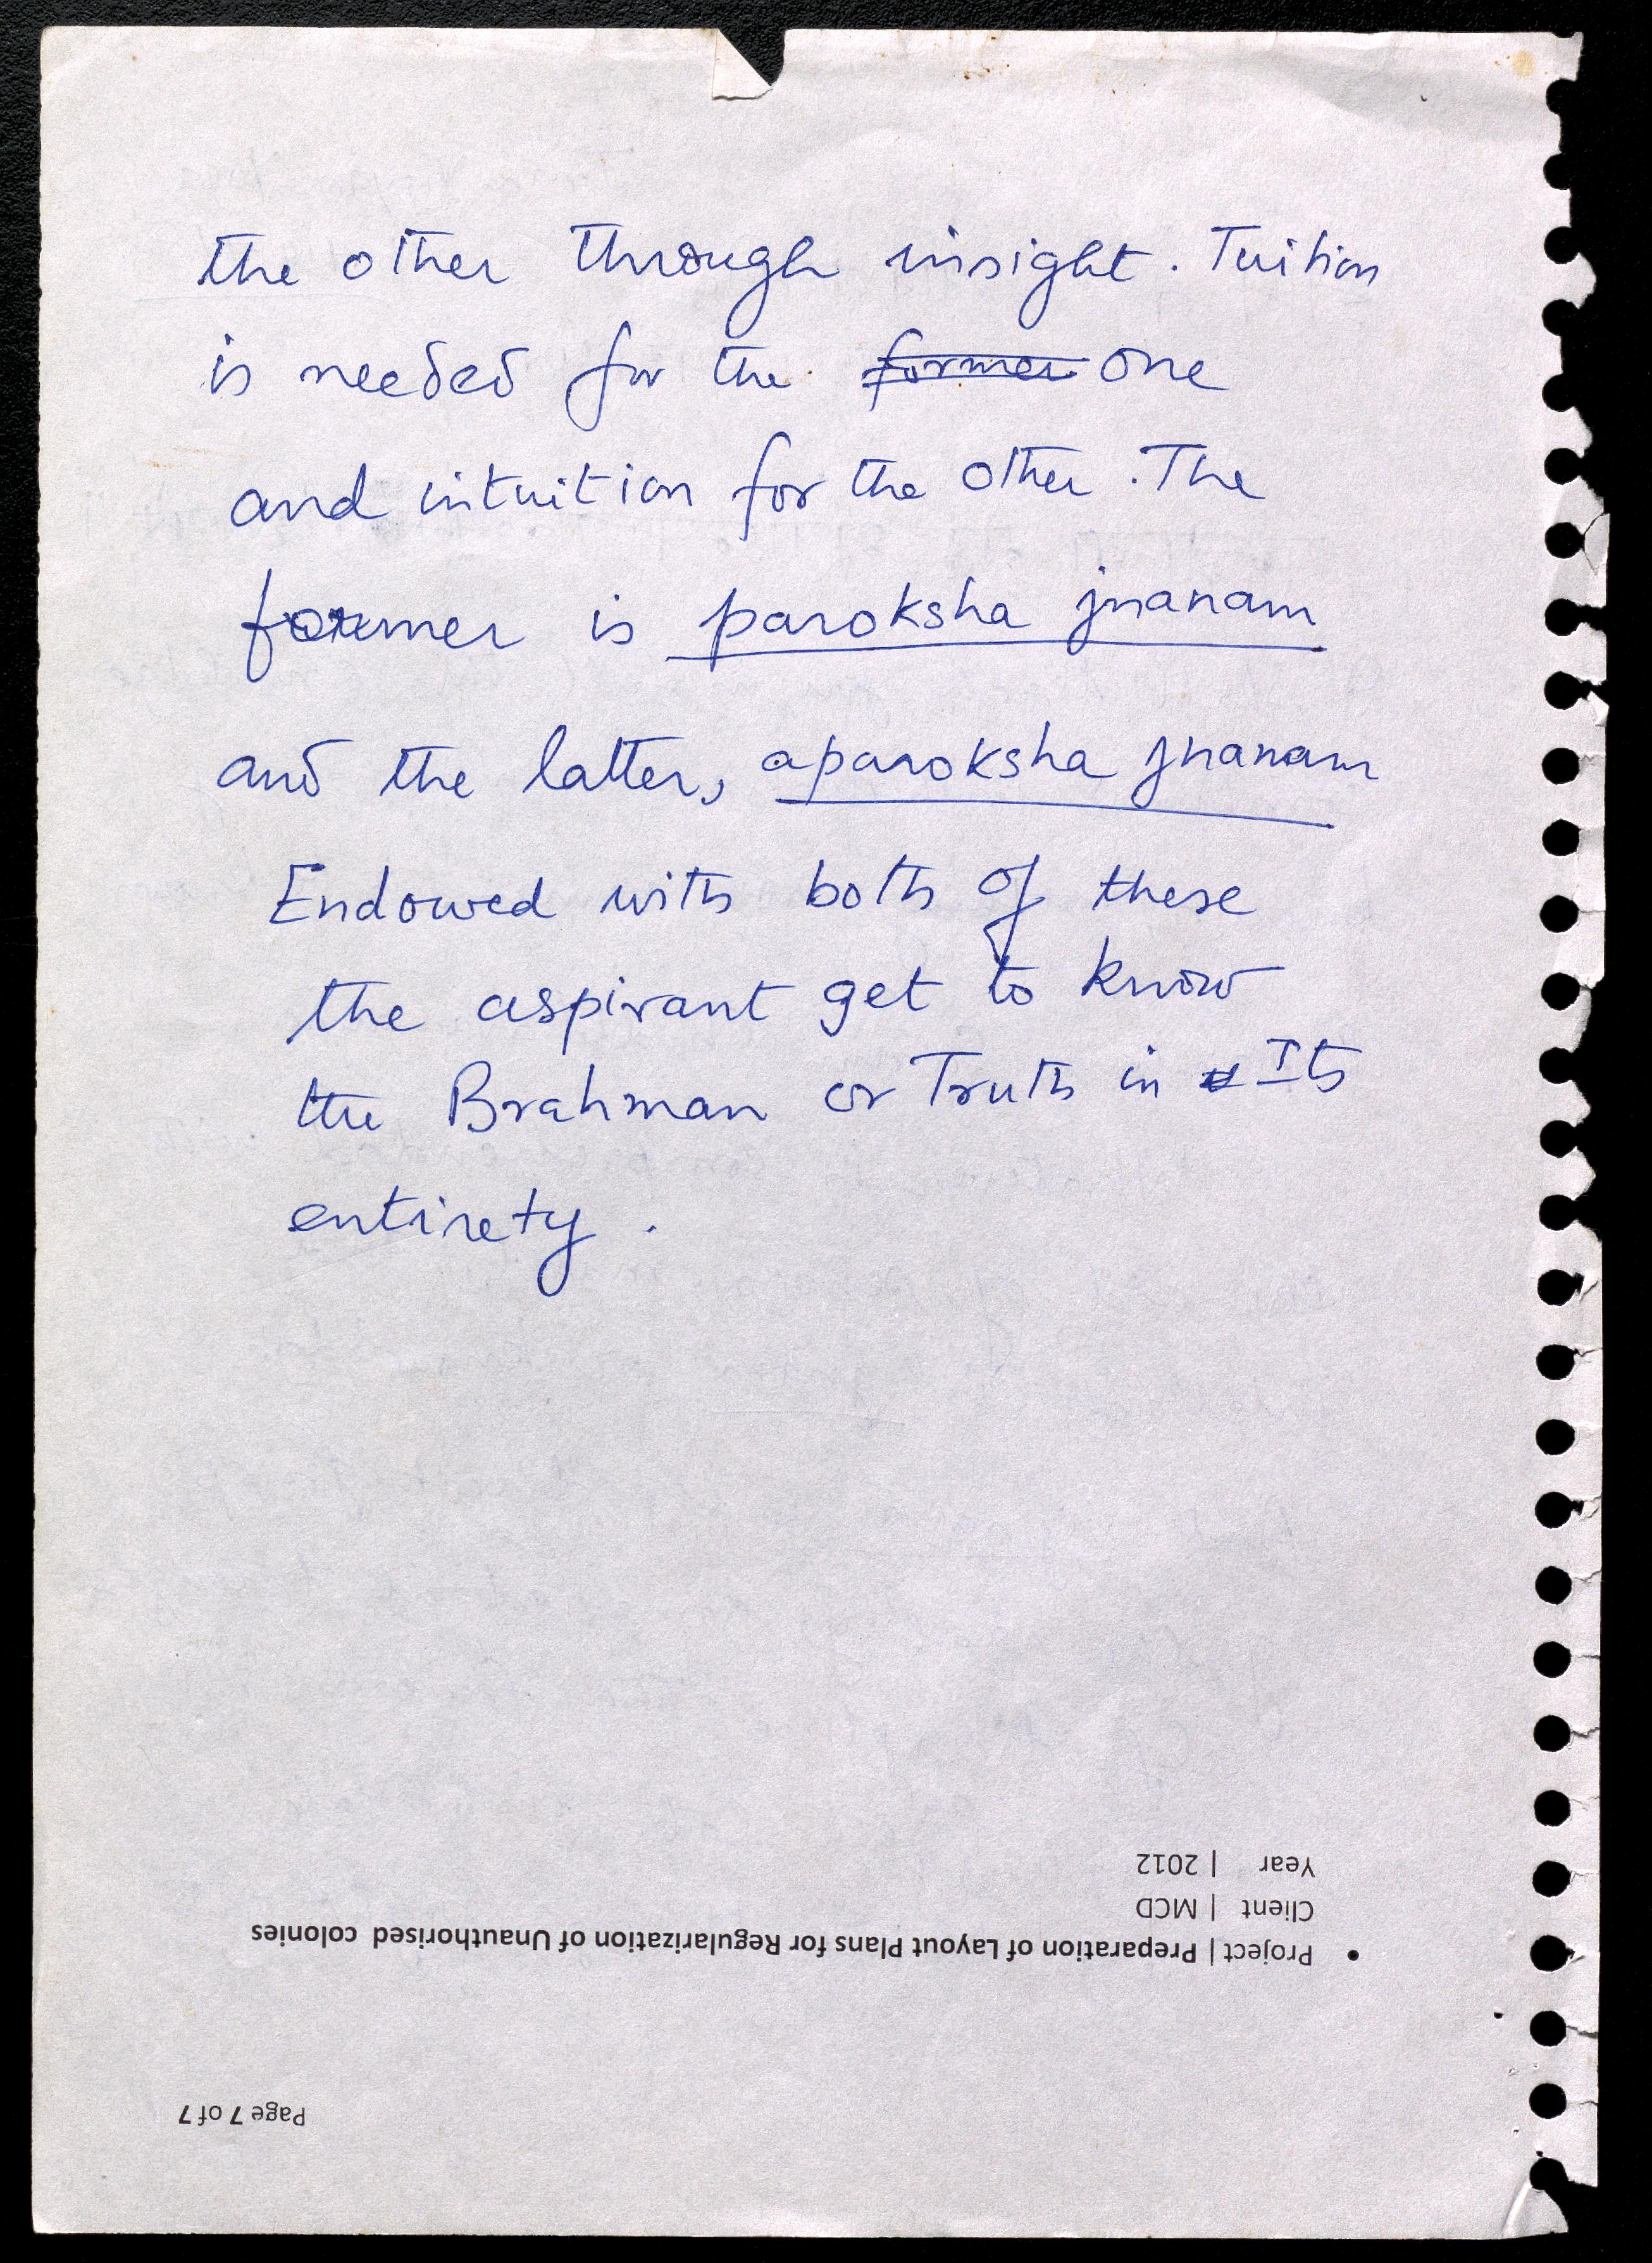 the other through insight. Tuition
is needed for the former one
and intuition for the other. The
former is paroksha jnanam
and the latter, aparoksha jnanam
Endowed with both of these
the aspirant get to know
the Brahman or Truth in Its
entirety.
Page 7 of 7
• Project | Preparation of Layout Plans for Regularization of Unauthorised colonies
Client | MCD
Year | 2012